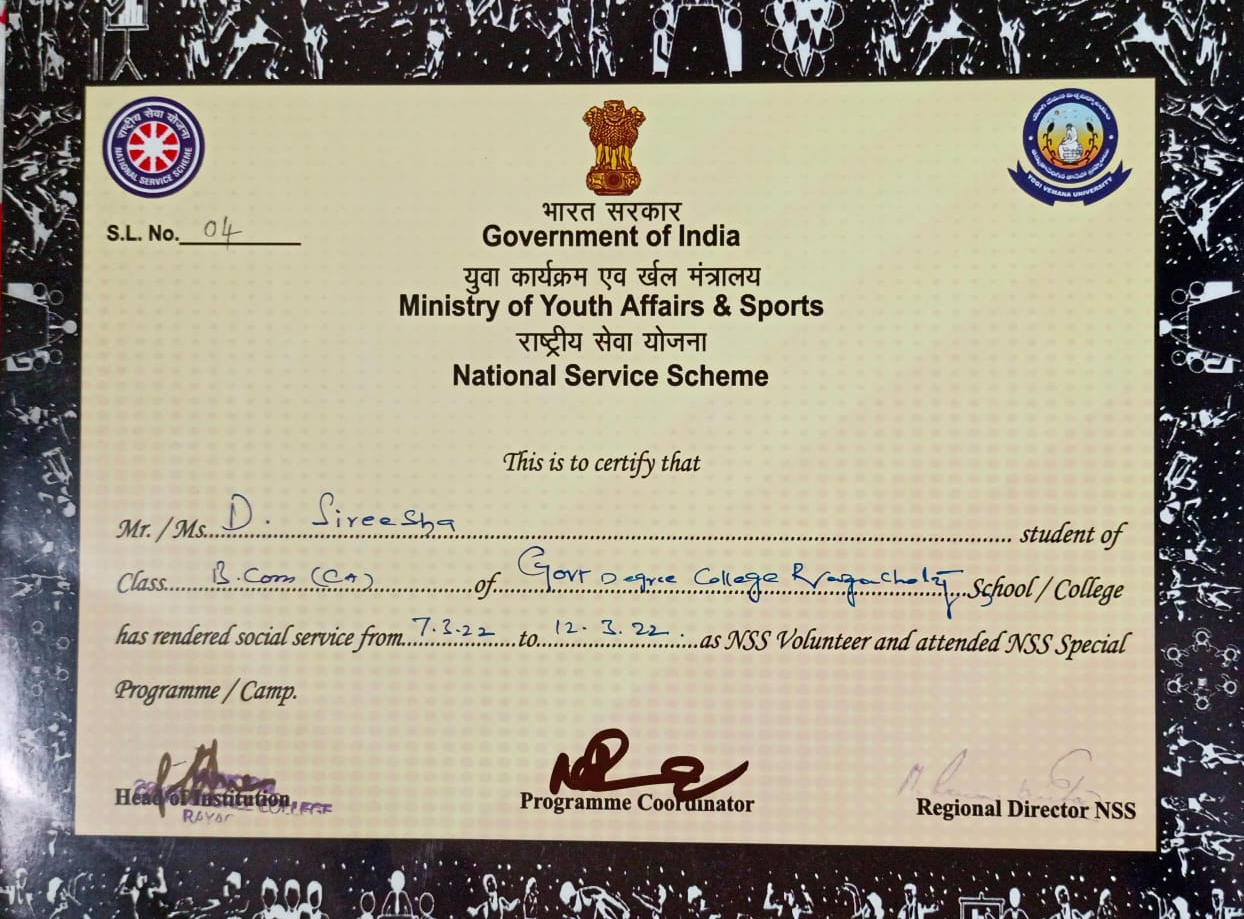 राष्ट्रीय सेवा योजना
NATIONAL SERVICE SCHEME
YOGI VEMANA UNIVERSITY
S.L. No. 04
भारत सरकार
Government of India
युवा कार्यक्रम एव र्खल मंत्रालय
Ministry of Youth Affairs & Sports
राष्ट्रीय सेवा योजना
National Service Scheme
This is to certify that
Mr. / Ms. D. Sireesha student of
Class B.Com (CA) of Govt Degree College Rayachoty School / College
has rendered social service from 7.3.22 to 12.3.22. as NSS Volunteer and attended NSS Special
Programme / Camp.
Head of Institution
COLLEGE
Programme Coordinator
Regional Director NSS